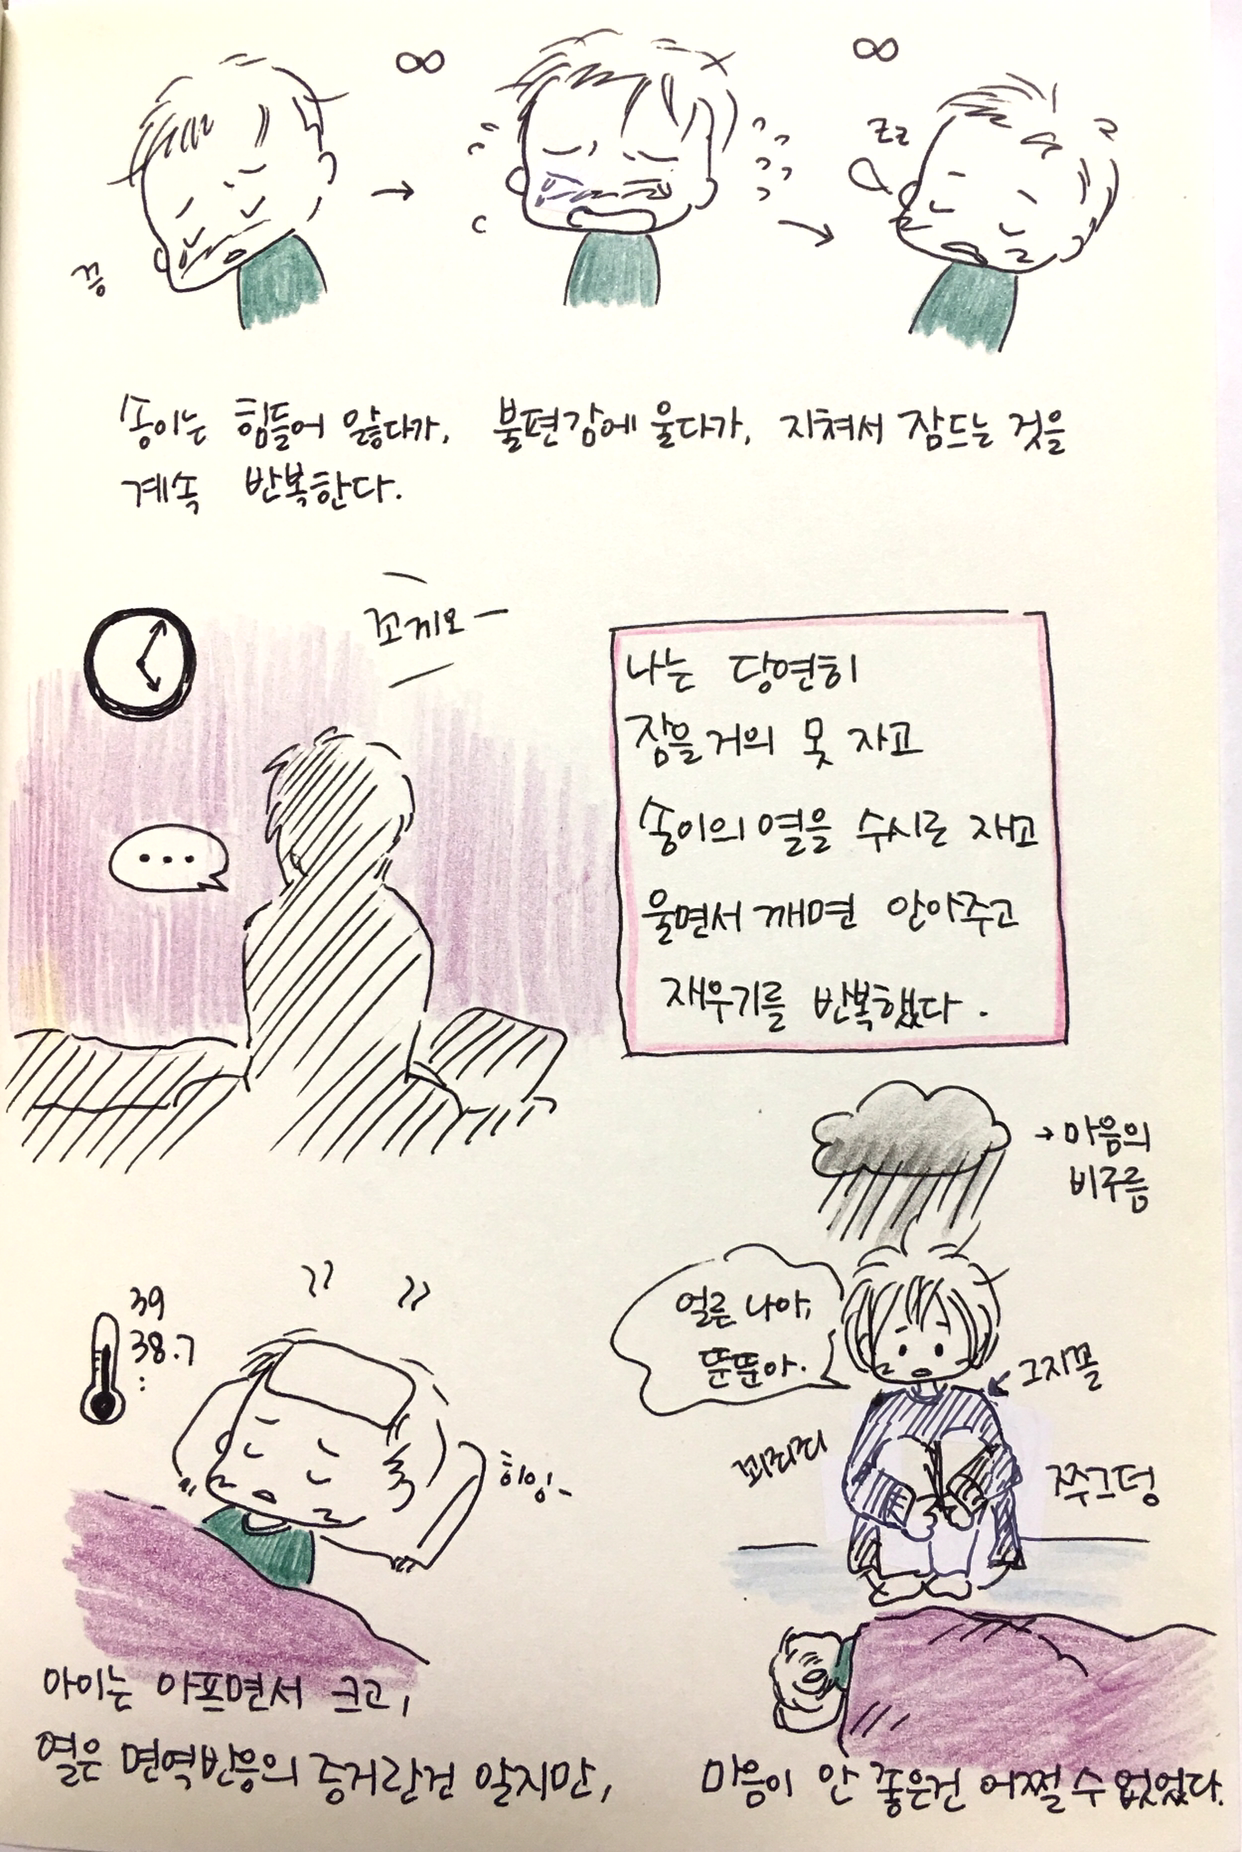 ∞
∞
Zz
끙
송이는 힘들어 앓다가, 불편감에 울다가, 지쳐서 잠드는 것을
계속 반복한다.
꼬끼오ㅡ
...
나는 당연히
잠을 거의 못 자고
송이의 열을 수시로 재고
울면서 깨면 안아주고
재우기를 반복했다.
→ 마음의
비구름
39
38.7
:
얼른 나아,
뚠뚠아.
그지꼴
꾀죄죄
쭈그덩
히잉~
아이는 아프면서 크고,
열은 면역반응의 증거란건 알지만,
마음이 안 좋은건 어쩔 수 없었다.